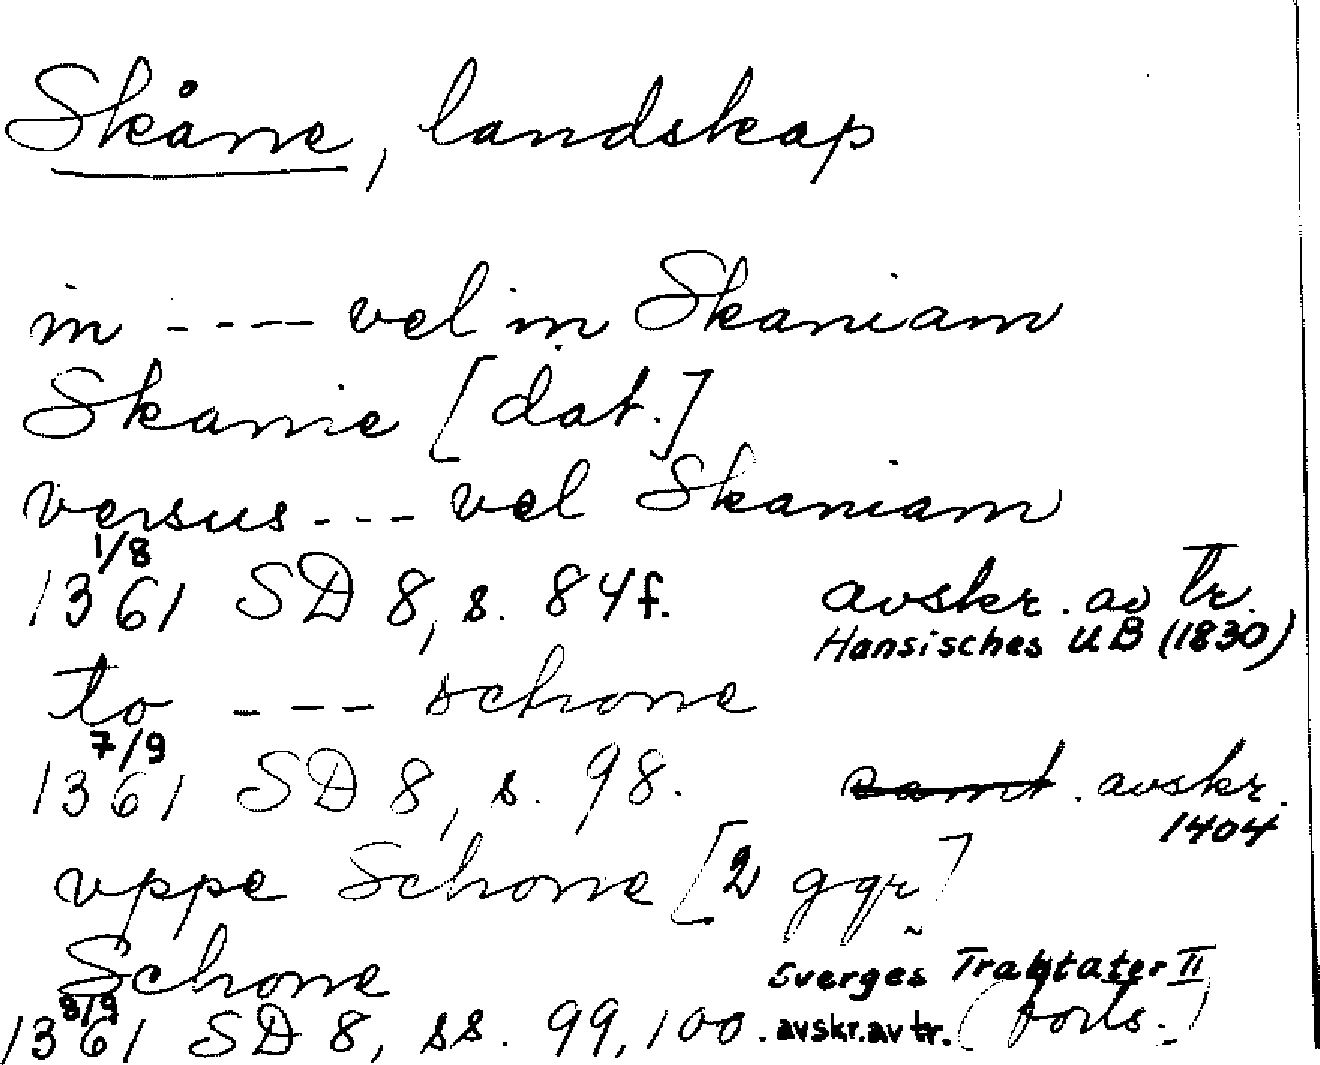 Skåne, landskap
in ---- vel in Skaniam
Skanie [dat.]
versus --- vel Skaniam
1/8
1361 SD 8, s. 84f. avskr. av tr.
Hansisches UB (1830)
to ---- schone
7/9
1361 SD 8, s. 98. samt. avskr.
1404
vppe Schone [2 ggr]
Schone
Sverges Traktater II
8/9
1361 SD 8, ss. 99, 100. avskr. av tr. (forts.)